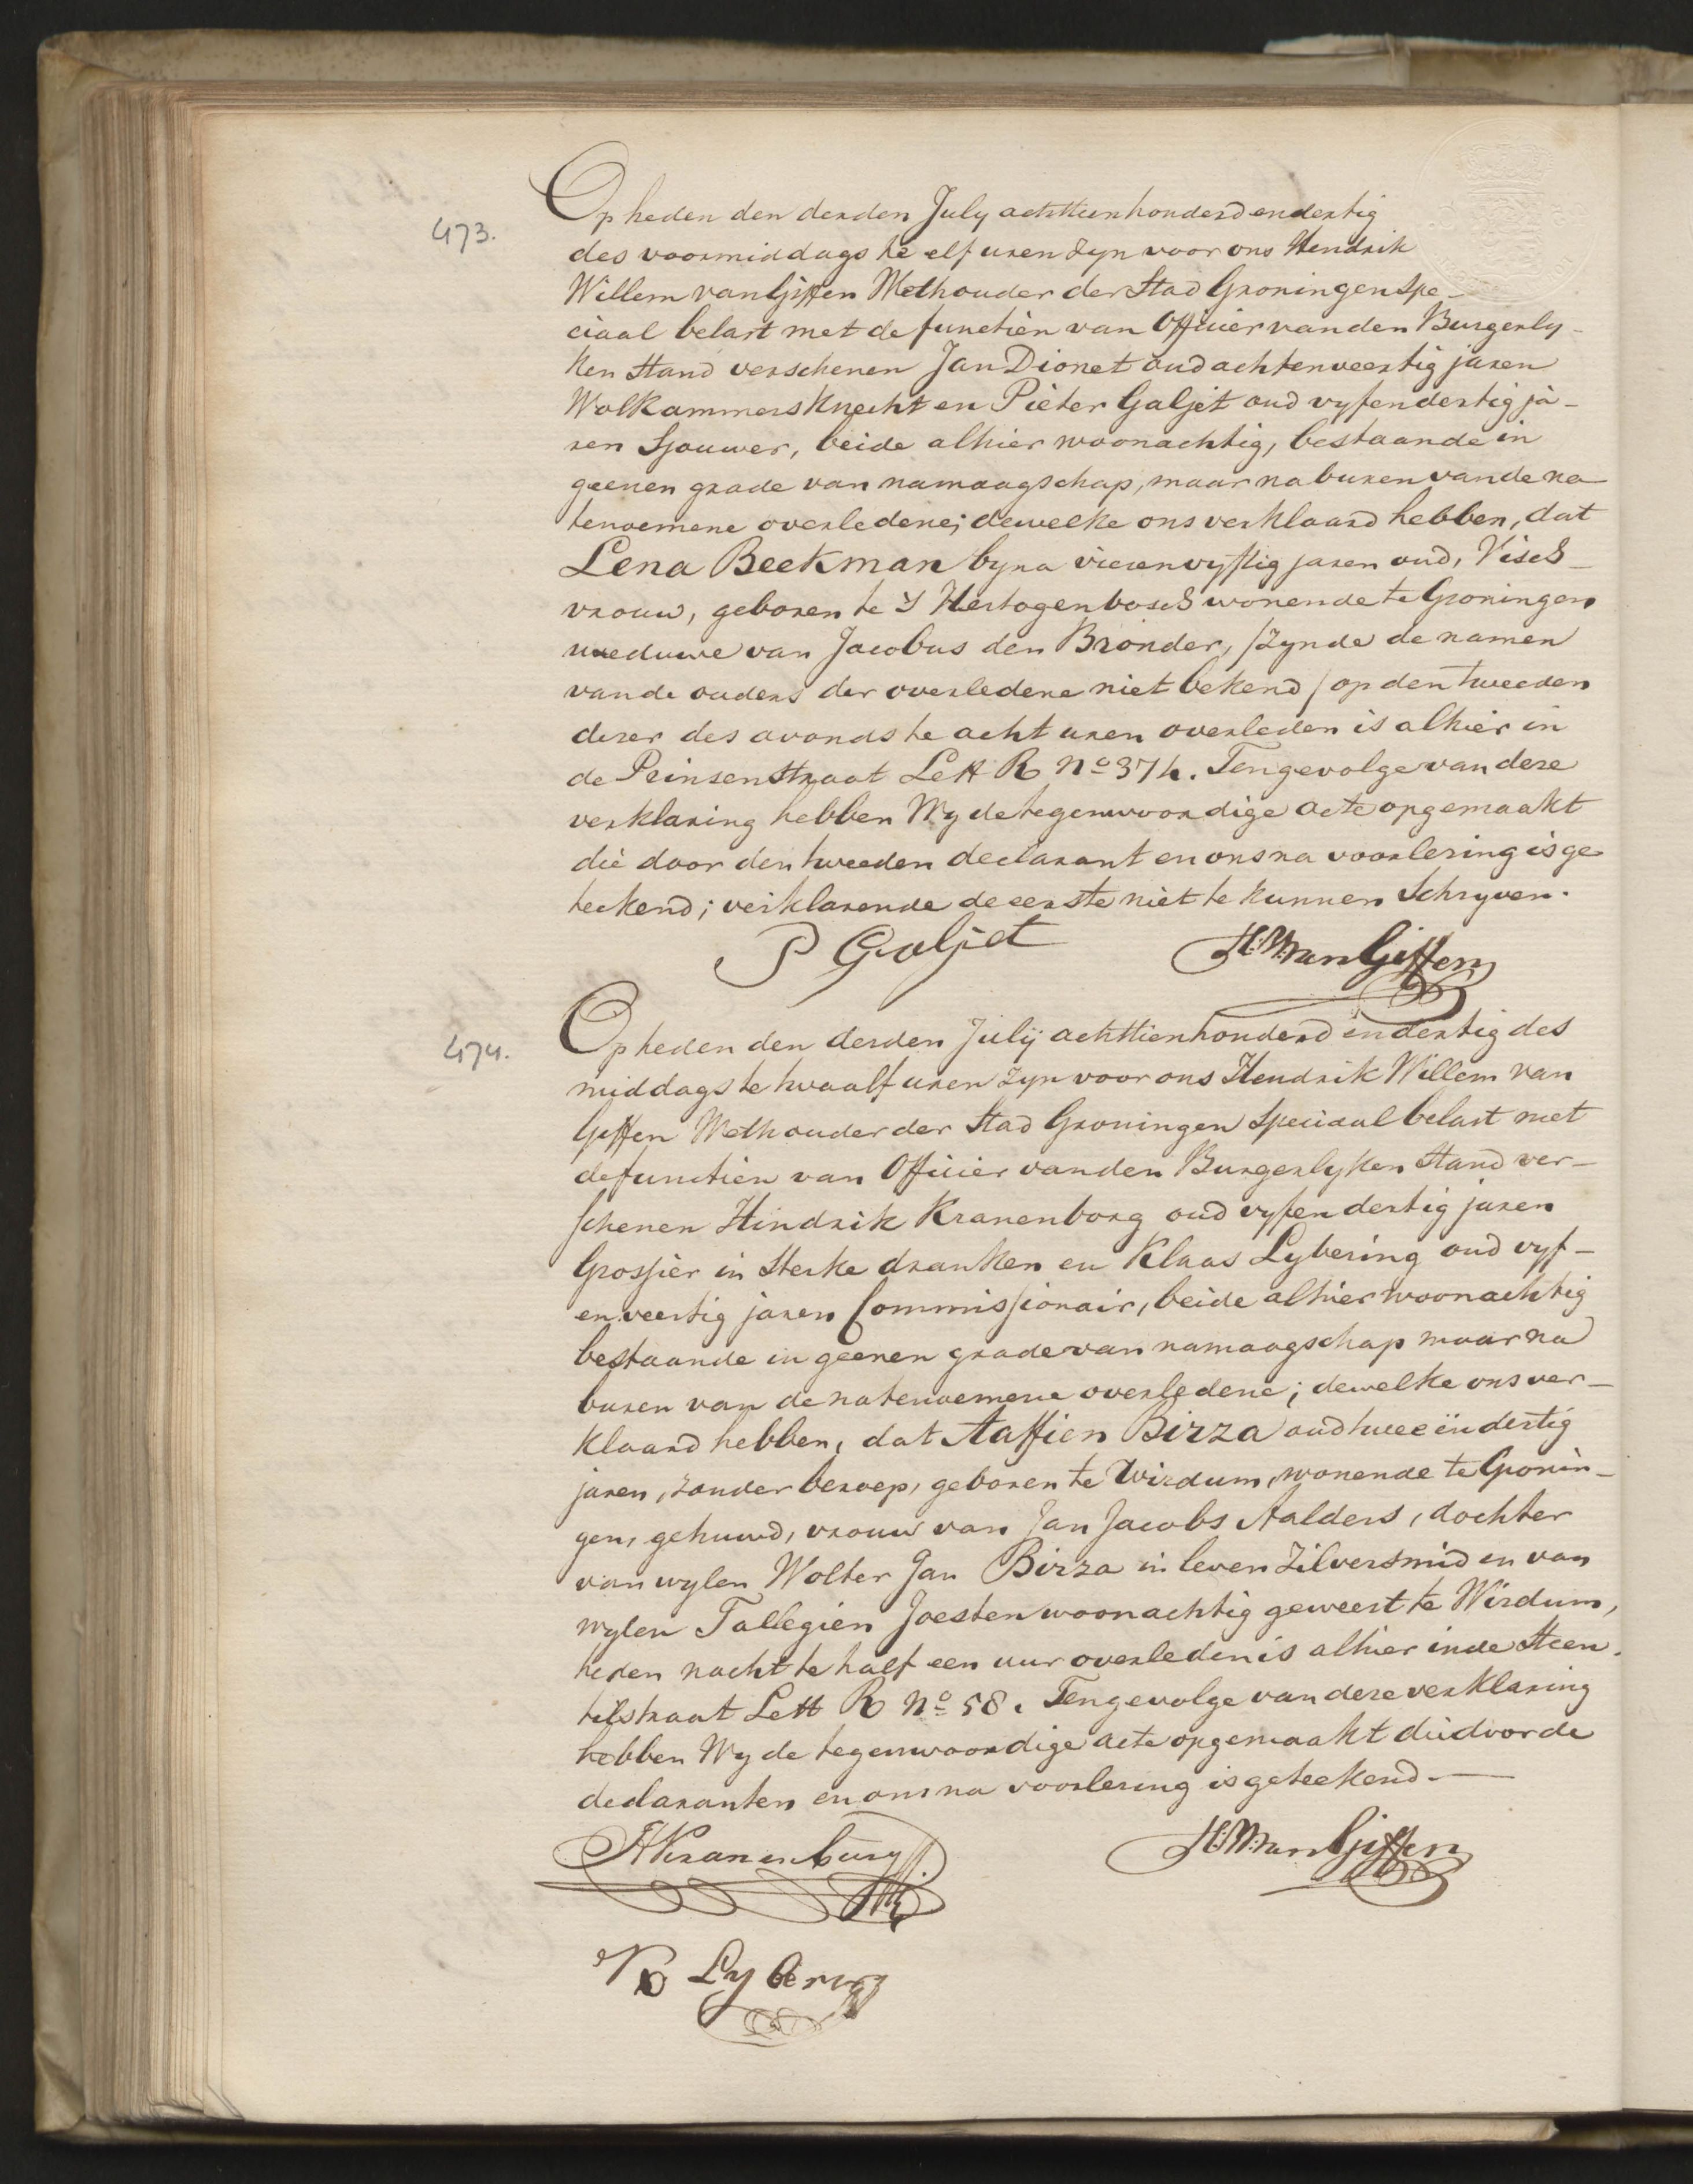 473.
Op heden den derden July achttienhonderd en dertig
des voormiddags te elf uren zyn voor ons Hendrik
Willem van Giffen Wethouder der Stad Groningen spe-
ciaal belast met de functiën van Officier van den Burgerly-
ken Stand verschenen Jan Dionet oud achtenveertig jaren
Wolkammersknecht en Pieter Galjet oud vyfendertig ja-
ren Sjouwer, beide alhier woonachtig, bestaande in
geenen grade van namaagschap, maar naburen van de na
tenoemene overledene; dewelke ons verklaard hebben, dat
Lena Beekman byna vierenvyftig jaren oud, Visch-
vrouw, geboren te S Hertogenbosch wonende te Groningen
weduwe van Jacobus den Bronder, /zynde de namen
van de ouders der overledene niet bekend/ op den tweeden
dezer des avonds te acht uren overleden is alhier in
de Peinsenstraat Lett R No 374. Tengevolge van deze
verklaring hebben Wy de tegenwoordige acte opgemaakt
die door den tweeden declarant en ons na voorlezing is ge
teekend; verklarende de eerste niet te kunnen Schryven.
P Galjet H:W: van Giffen
474.
Op heden den derden July achttienhonderd en dertig des
middags te twaalf uren zyn voor ons Hendrik Willem van
Giffen Wethouder der Stad Groningen Speciaal belast met
de functiën van Officier van den Burgerlyken Stand ver-
schenen Hindrik Kranenborg oud vyfendertig jaren
Grossier in Sterke dranken en Klaas Lybering oud vyf-
enveertig jaren Commissionair, beide alhier woonachtig
bestaande in geenen grade van namaagschap maar na
buren van de natenoemene overledene; dewelke ons ver-
klaard hebben, dat Aaffien Birza oud tweeëndertig
jaren, zonder beroep, geboren te Wirdum, wonende te Gronin-
gen, gehuwd, vrouw van Jan Jacobs Aalders, dochter
van wylen Wolter Jan Birza in leven Zilversmid en van
wylen Tallegien Joesten woonachtig geweest te Wirdum,
heden nacht te half een uur overleden is alhier in de Steen
tilstraat Lett R No 58. Tengevolge van deze verklaring
hebben Wy de tegenwoordige acte opgemaakt die door de
declaranten en ons na voorlezing is geteekend.
HKranenburg H:W: van Giffen
K Lybering